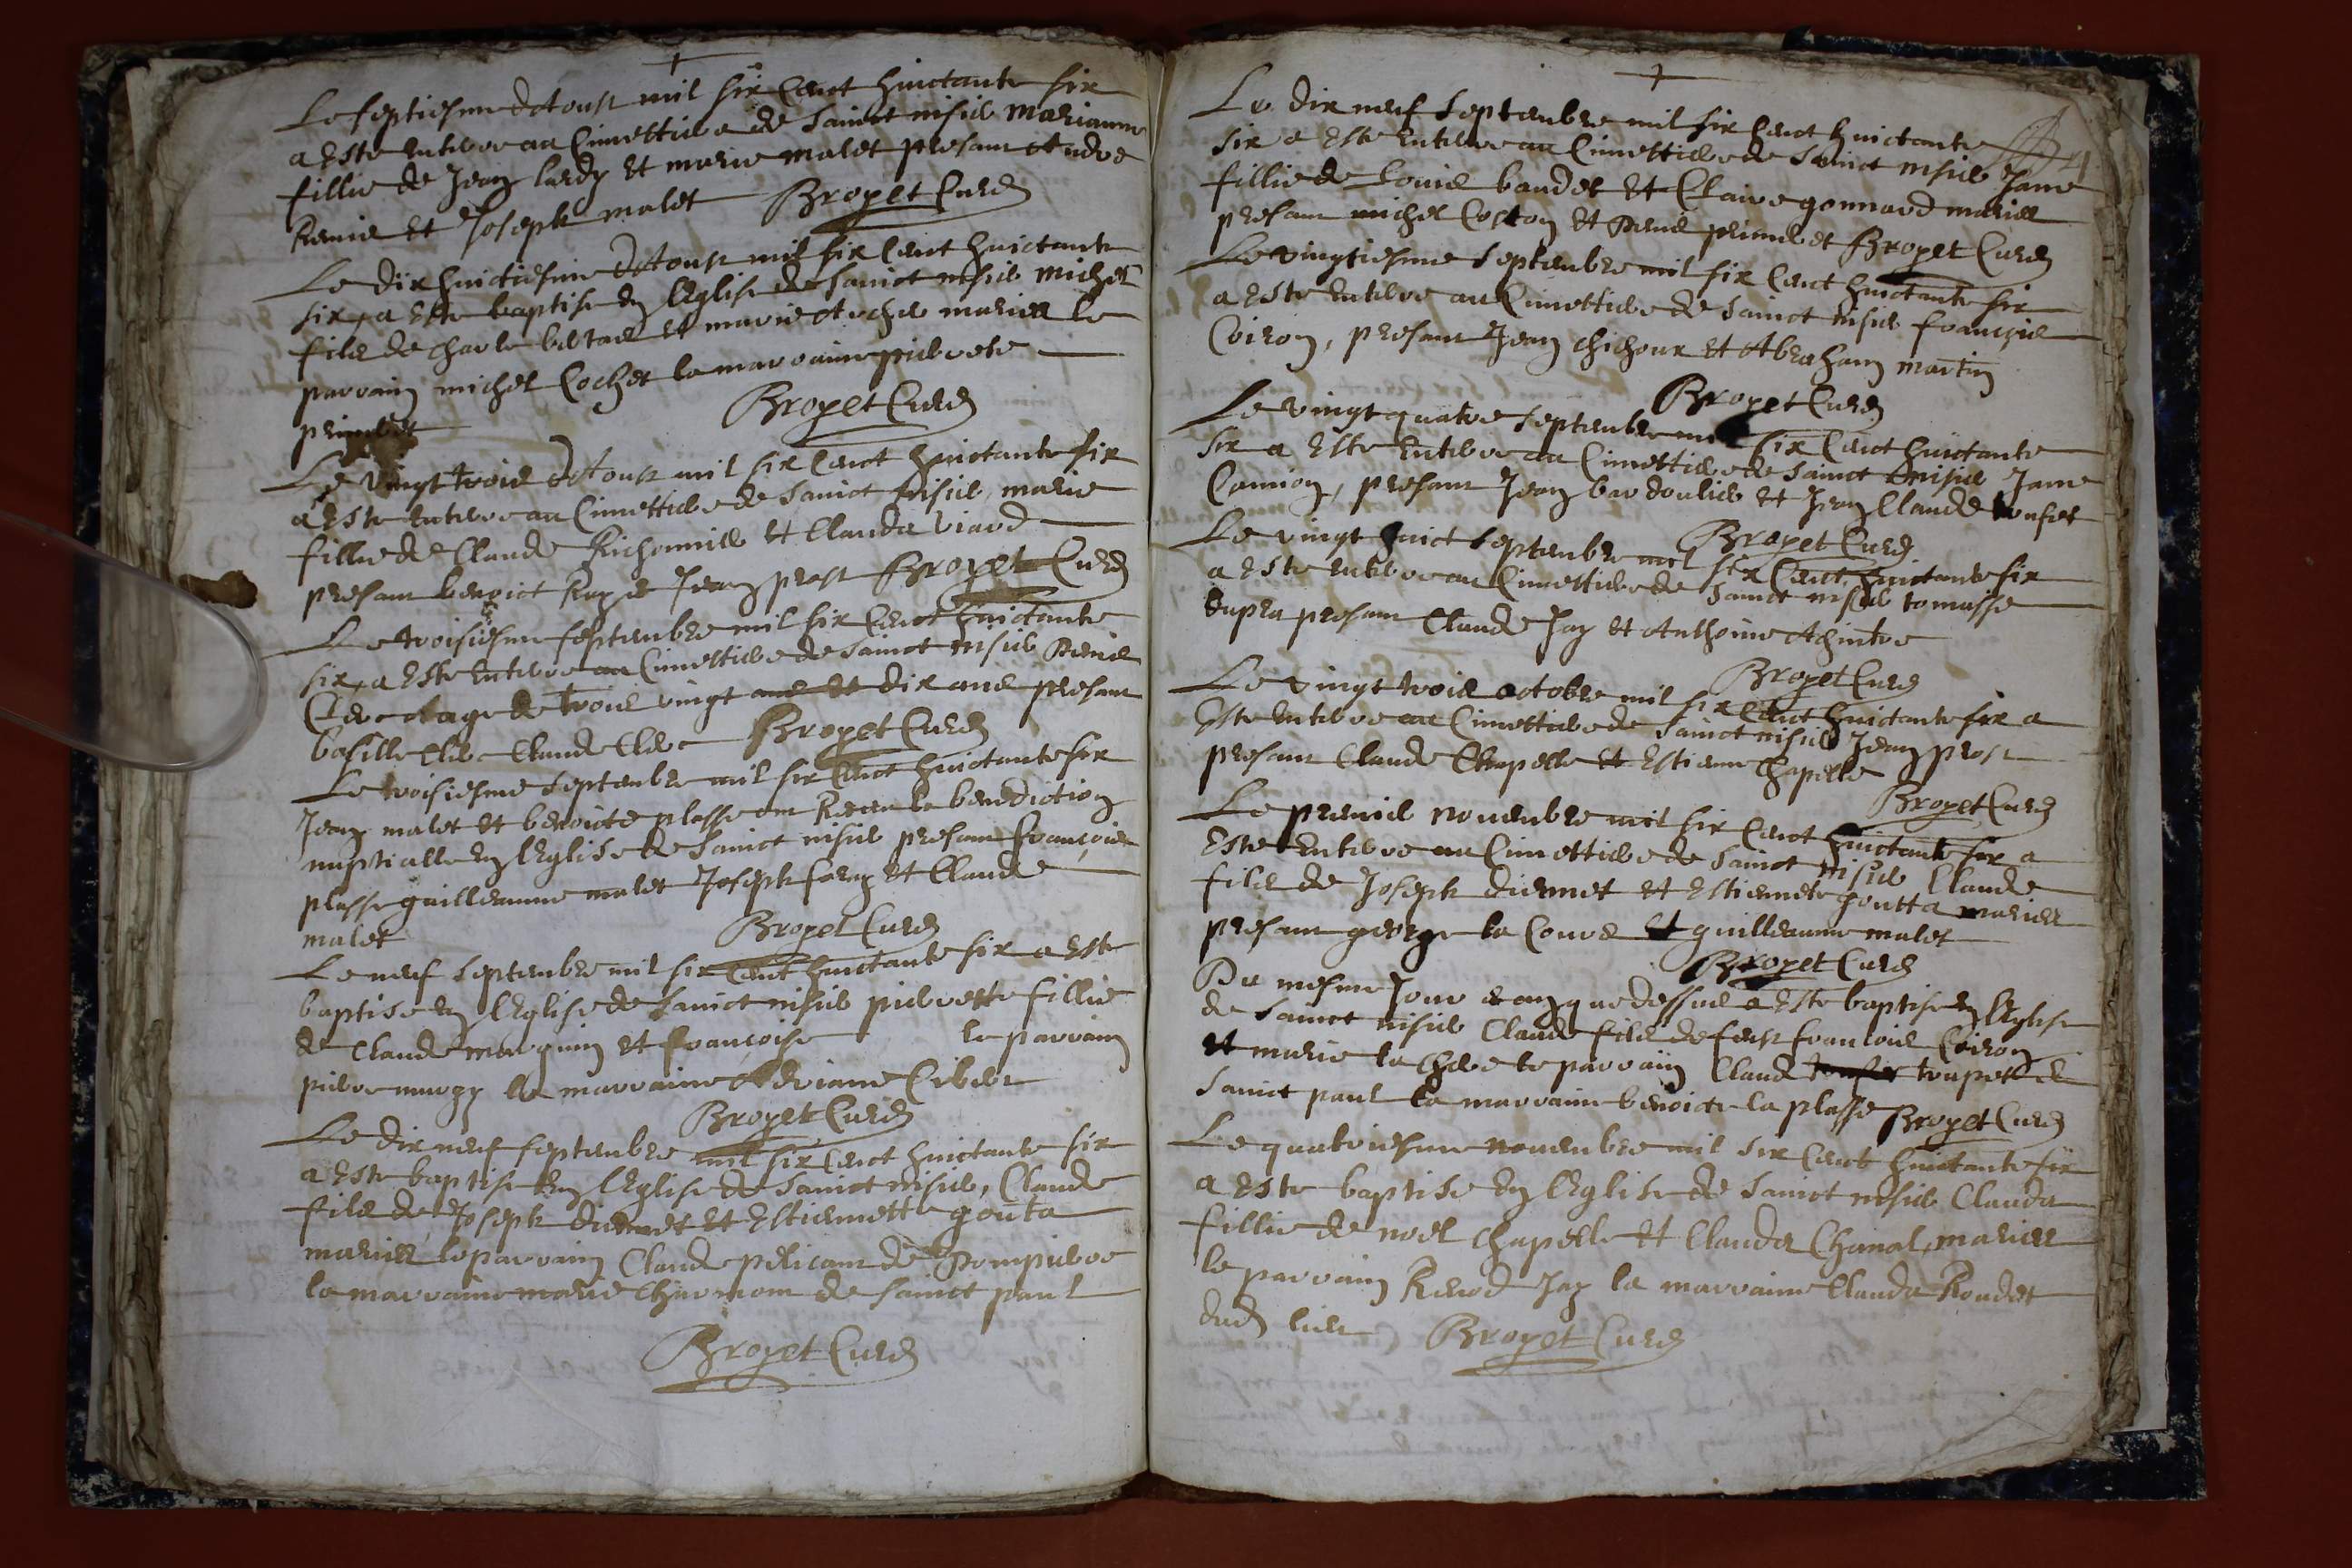 Le septiesme dAoust mil six Cent huictante six
a Este Enterre au Cimettiere de Sainct nisier Marianne
fillie de Jean lardy Et marie malet presant Andre
Renie Et Joseph malet Broyet Curé
Le dix huictiesme dAoust mil six Cent huictante
six, a Este baptise En lEglise de Sainct nisier Michel
fils de Charle Et marie mariez le
parrain michel Cochet la marraine pierrete
primbet
Broyet Curé
Le vingt trois dAoust mil six Cent huictante six
a Este Enterre au Cimettiere de Sainct nisier, marie
fillie de Claude Richonnier Et Clauda Viard
presant benoict Jean prost Broyet Curé
Le troisiesme septembre mil six Cent huictante
six, a Este Enterre au Cimettiere de Sainct nisier Denis
Clerc aage de trois vingt ans Et dix ans presant
basille Clerc Claude Clerc Broyet Curé
Le troisiesme Septembre mil six Cent huictante six
Jean malet Et benoicte plasse ont Receu la benediction
nuptialle En lEglise de Sainct nisier presant françois
plasse guilleaume malet Joseph Et Claude
malet
Broyet Curé
Le neuf Septembre mil six Cent huictante six a Este
baptise En lEglise de Sainct nisier pierrette fillie
de Claude marguin Et françoise le parrain
pierre la marraine
Broyet Curé
Le dix neuf septembre mil six Cent huictante six
a Este baptise En lEglise de Sainct nisier, Claude
fils de Joseph diermet Et Estiennette goutta
mariez le parrain Claude pelican de Dompierre
la marraine marie de Sainct paul
Broyet Curé
Le dix neuf Septembre mil six Cent huictante
six a Este Enterre au Cimettiere de Sainct nisier Jane
fillie de Louis baudet Et Claire gonnard mariez
presant michel Coston Et Denis primbet Broyet Curé
Le vingtiesme Septembre mil six Cent huictante six
a Este Enterre au Cimettiere de Sainct nisier françois
Coiron, presant Jean chichoux Et Abraham martin
Broyet Curé
Le vingt quatre Septembre mil six Cent huictante
six a Este Enterre au Cimettiere de Sainct nisier Jane
Camion, presant Jean bardoulier Et Jean Claude
Broyet Curé
Le vingt huict Septembre mil six Cent huictante six
a Este Enterre au Cimettiere de Sainct nisier tomasse
dupra presant Claude Jay Et Anthoine
Broyet Curé
Le vingt trois octobre mil six Cent huictante six a
Este Enterre au Cimettiere de Sainct nisier Jean prost
presant Claude Chapelle Et Estienne Chapelle
Broyet Curé
Le premier novembre mil six Cent huictante six a
Este Enterre au Cimettiere de Sainct nisier Claude
fils de Joseph diermet Et Estiennete goutta mariez
presant george la Coure Et guilleaume malet
Broyet Curé
Du mesme Jour Et an que dessus a Este baptise En lEglise
de Sainct nisier Claude fils de feust francois Coiron
Et marie le parrain Claude trupet de
Sainct paul la marraine benoicte la plasse Broyet Curé
Le quatriesme novembre mil six Cent huictante six
a Este baptise En lEglise de Sainct nisier Clauda
fillie de noel Chapelle Et Clauda Chanal, mariez
le parrain Renod Jay la marraine Clauda Roudet
dud lieu Broyet Curé